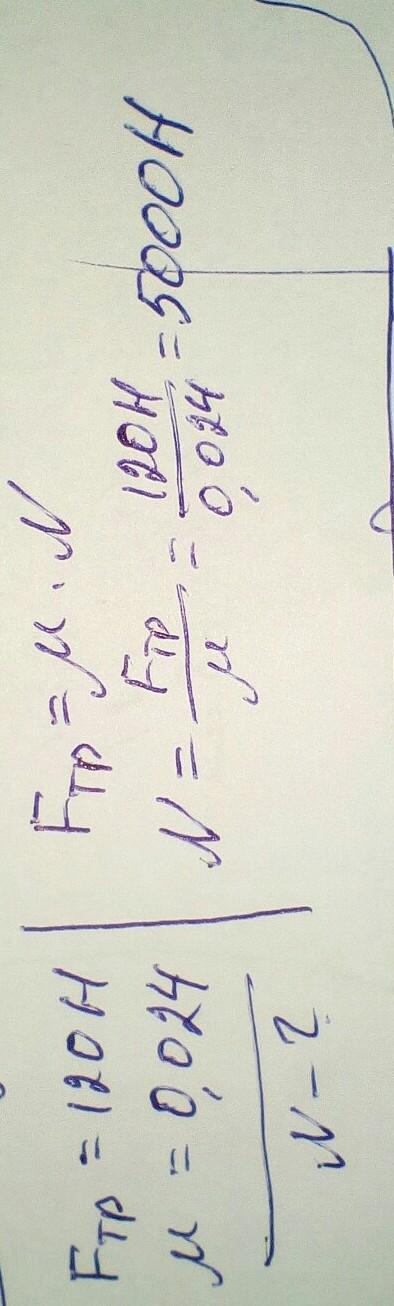 Fтр = 120Н
μ = 0,024
N – ?
Fтр = μ · N
N = Fтр/μ = 120Н/0,024 = 5000Н